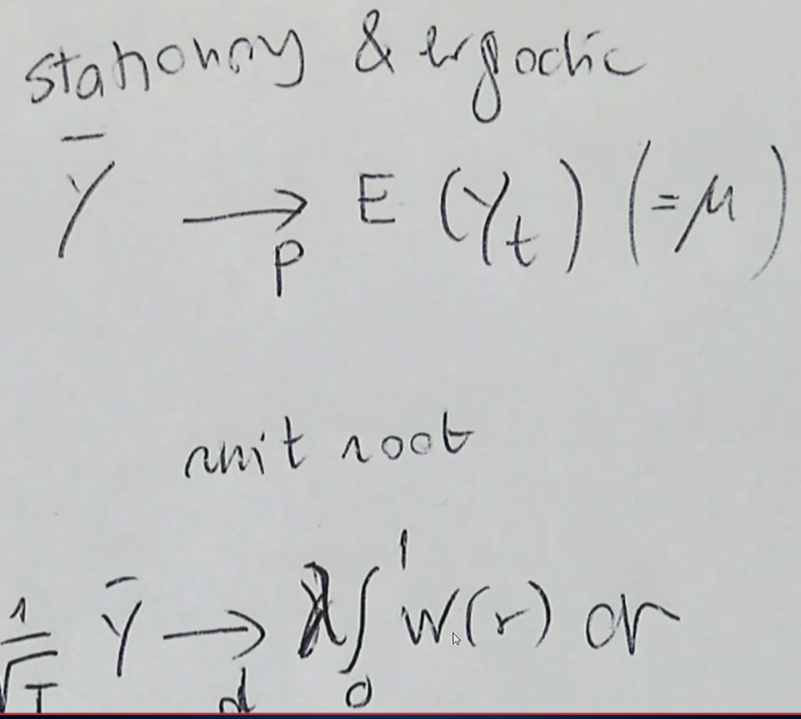 stationary & ergodic
Ȳ →p E(Yt) (=μ)
unit root
1/√T Ȳ →d λ∫₀¹ W(r) dr